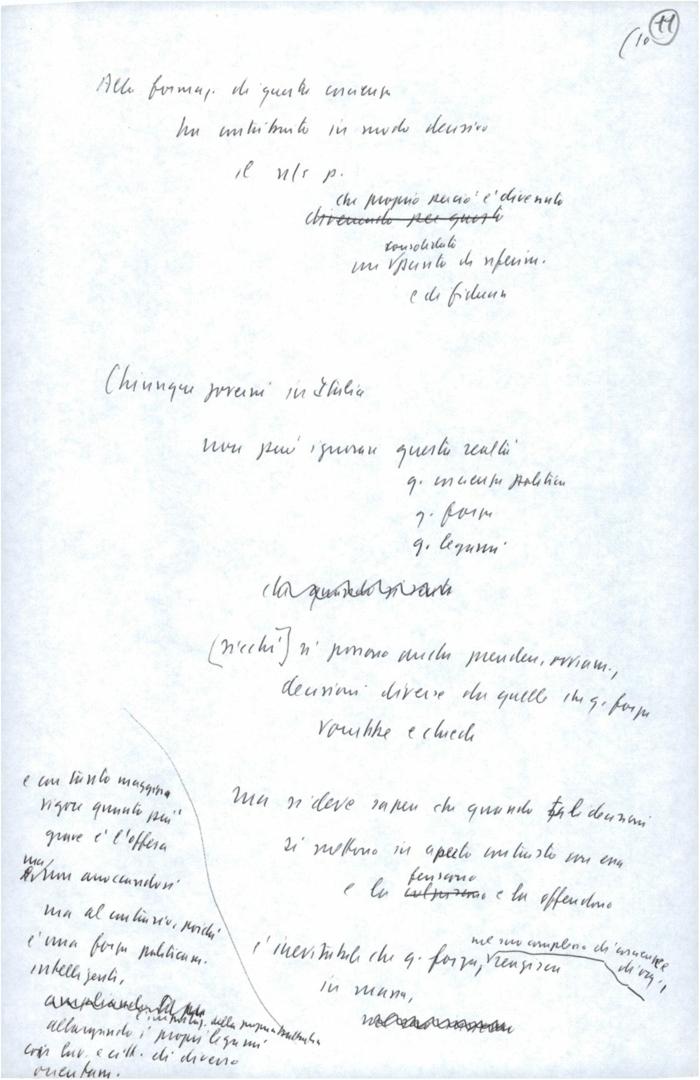 (10 11
Alla formaz. di questa coscienza
ha contribuito in modo decisivo
il n/s p.
che proprio perciò è divenuto
divenendo per questo
consolidato
un punto di riferim.
e di fiducia
Chiunque governi in Italia
non può ignorare questa realtà
q. coscienza politica
q. forza
q. legami
[sicché] si possono anche prendere, ovviam.,
decisioni diverse da quelle che q. forza
vorrebbe e chiede
ma si deve sapere che quando tali decisioni
si mettono in aperto contrasto con essa
feriscono
e la e la offendono
nel suo complesso di coscienze
è inevitabile che q. forza, reagisca
in massa,
e con tanto maggior
vigore quanto più
grave è l'offesa
ma
non arroccandosi
ma al contrario, poiché
è una forza politicam.
intelligente,
della propria
allargando i propri legami
con lav. e citt. di diverso
orientam.